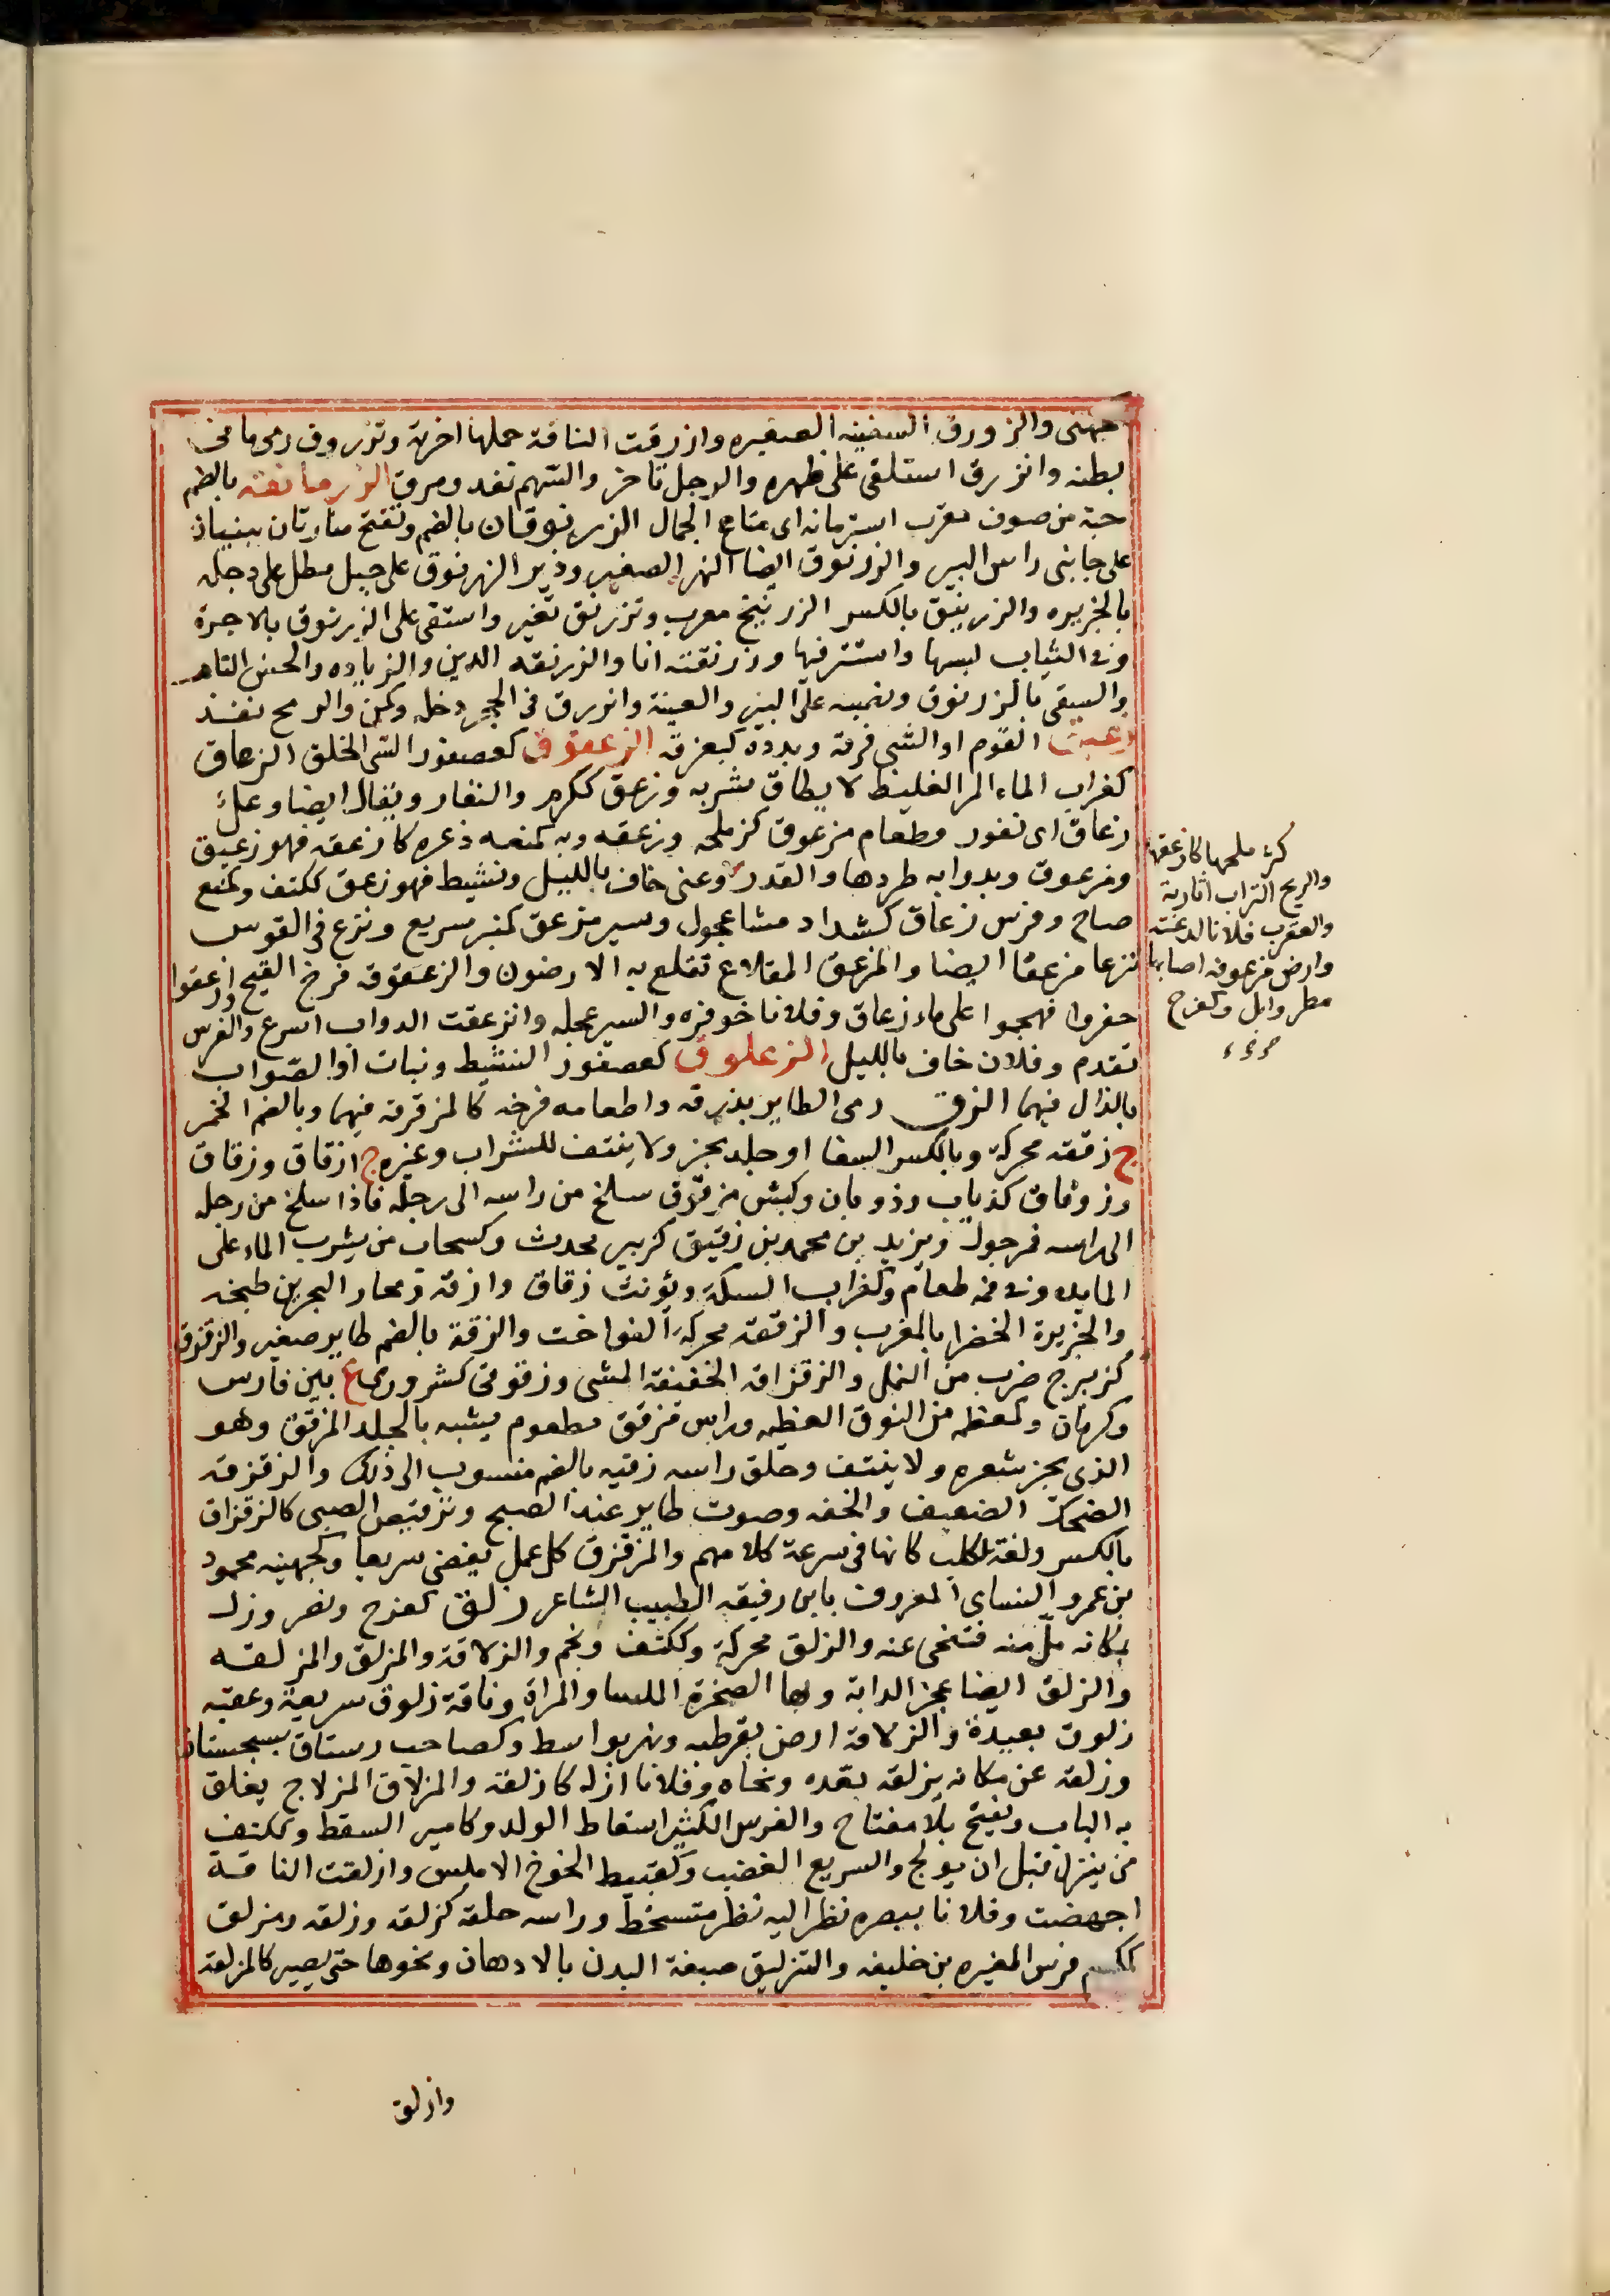 جهنى والزورق السفينه الصغيره وازرقت الناقة حملها اخرته وتزروق رمى ما فى
بطنه وانزرق استلقى على ظهره والرجل تاخر والسهم نفد ومرق الزرمانقة بالضم
جبة من صوف معرب استربانه اى متاع الجمال الزرنوقان بالضم وتفتح منارتان يبنيان
على جانبى راس البير والزرنوق ايضا النهر الصغير ودير الزرنوق على جبل مطل على دجله
بالجزيره والزرنيق بالكسر الزرنيخ معرب وتزرنق تعين واستقى على الزرنوق بالاجرة
وفى الثياب لبسها واستتر فيها وزرنقته انا والزرنقه الدين والزياده والحسن التام
والسقى بالزرنوق ونصبه على البير والعينة وانزرق فى الجحر دخله وكمن والرمح نفذ
زعبق القوم او الشى فرقه وبدده كبعزقه الزعقوق كعصفور السى الخلق الزعاق
كغراب الماء المر الغليظ لا يطاق شربه وزعق ككرم والنفار ويقال ايضا وعل
زعاق اى نفور وطعام مزعوق كثر ملحه وزعقه وبه كمنعه ذعره كازعقه فهو زعيق
ومزعوق وبدوابه طردها والقدر وعنى خاف بالليل ونشيط فهو زعق ككتف وكمنع
صاح وفرس زعاق كشداد مشا عجول وسير مزعق كمنبر سريع ونزع فى القوس
نزعا مزعقا ايضا والمزعق المقلاع تقلع به الارضون والزعقوقه فرخ القبج وازعقوا
حفروا فهجموا على ماء زعاق وفلانا خوفه والسير عجله وانزعقت الدواب اسرع والفرس
تقدم وفلان خاف بالليل الزعلوق كعصفور النشيط ونبات او الصواب
بالذال فيهما الزق رمى الطاير بذرقه واطعامه فرخه كالزقزقة فيهما وبالضم الخمر
ج زققه محركة وبالكسر السقا او جلد يجز ولا ينتف للشراب وغيره ج ازقاق وزقاق
وزوقاق كذياب وذوبان وكبش مزقوق سلخ من راسه الى رجله فاذا سلخ من رجله
الى راسه فمرجول ويزيد بن محمد بن زقيق كزبير محدث وكسحاب من يشرب الماء على
المايده وفى فمه طعام وكغراب السكة ويؤنث زقاق وازقة ومجاز البحر بين طنجه
والجزيرة الخضرا بالمغرب والزققه محركة الفواخت والزقة بالضم طاير صغير والزقزق
كزبرج ضرب من النمل والزقزاقه الخفيفة المشى وزقوقى كشرورى ع بين فارس
وكرمان وكمعظمه من النوق العظيمه وراس مزقق مطموم يشبه بالجلد المزقق وهو
الذى يجز شعره ولا ينتف وحلق راسه زقيه بالضم منسوب الى ذلك والزقزقه
الضحك الضعيف والخفه وصوت طاير عند الصبح وترقيص الصبى كالزقزاق
بالكسر ولغة لكلب كانها فى سرعة كلامهم والمزقزق كل عمل يقضى سريعا وكجهينه محمود
بن عمر والنساى المعروف بابن زقيقه الطبيب الشاعر زلق كفرح ونصر وزلـ
بمكانه مل منه فتنحى عنه والزلق محركة وككتف ونجم والزلاقة والمزلق والمزلقه
والزلق ايضا عجز الدابة وبها الصخرة الملسا والمراة وناقة زلوق سريعة وعقبه
زلوق بعيدة والزلاقة ارض بقرطبه ونهر بواسط وكصاحب رستاق بسجستان
وزلقه عن مكانه يزلقه بعده ونحاه وفلانا ازله كازلقه والمزلاق المزلاج يغلق
به الباب ويفتح بلا مفتاح والفرس الكثير اسقاط الولد وكامير السقط وككتف
من ينزل قبل ان يولج والسريع الغضب وكقبيط الخوخ الاملس وازلقت الناقة
اجهضت وفلانا ببصره نظر اليه نظر متسخط وراسه حلقه كزلقه وزلقه ومزلق
كمكرم فرس المغيره بن خليفه والتزليق صبغة البدن بالادهان ونحوها حتى يصير كالمزلقه
كثر ملحها كازعقها
والريح التراب اثارته
والعقرب فلانا لدغته
وارض مزعوقه اصابها
مطر وابل وكفرح
وازلق